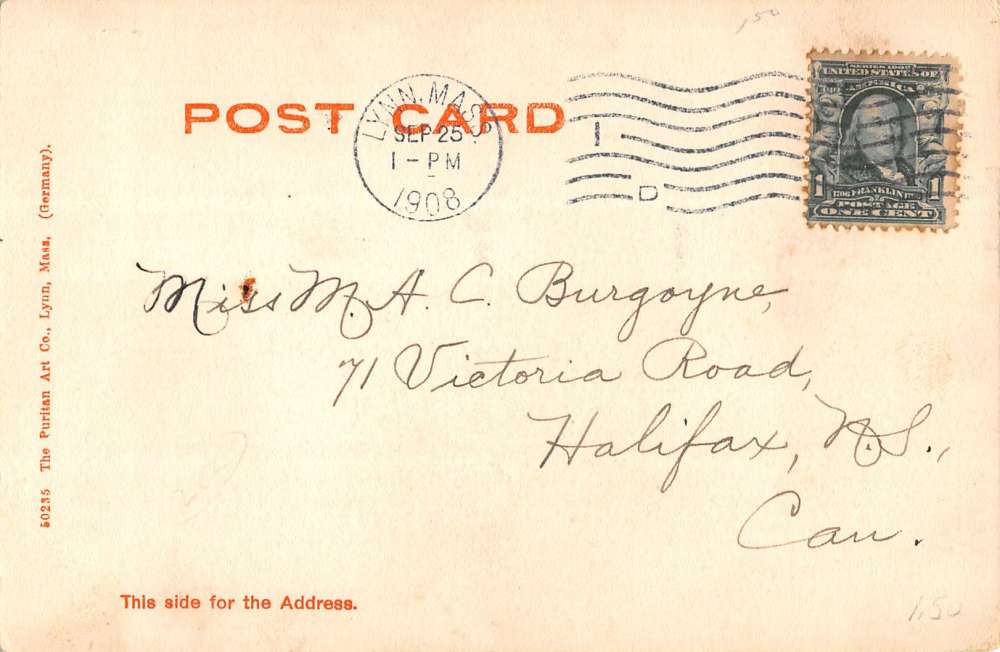 .50
POST CARD
LYNN, MASS.
SEP 25
1 - PM
1908
I
D
SERIES 1902
UNITED STATES OF
AMERICA
1706 FRANKLIN 1790
1 1
POSTAGE
ONE CENT
Miss M. A. C. Burgoyne,
71 Victoria Road,
Halifax, N.S.,
Can.
50235 The Puritan Art Co., Lynn, Mass. (Germany).
This side for the Address.
1.50